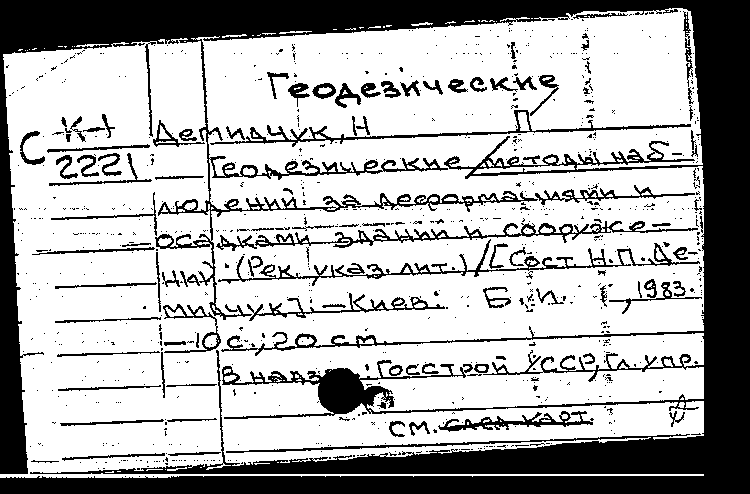 Геодезические
К-1
Демидчук, Н П
С 2221
Геодезические методы наб-
людений за деформациями и
осадками зданий и сооруже-
ний: (Рек. указ. лит.) / [Сост. Н.П. Де-
мидчук]. — Киев: Б.и., 1983.
— 10 с.; 20 см.
В надз.: Госстрой УССР, Гл. упр.
см. след карт